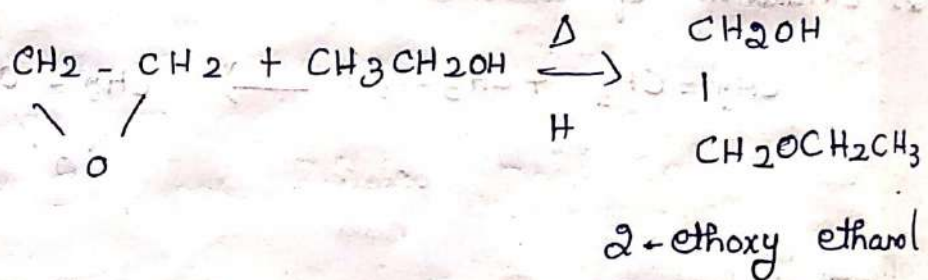 Δ CH2OH
CH2 - CH2 + CH3CH2OH ⇌ |
\ / H
O CH2OCH2CH3
2-ethoxy ethanol